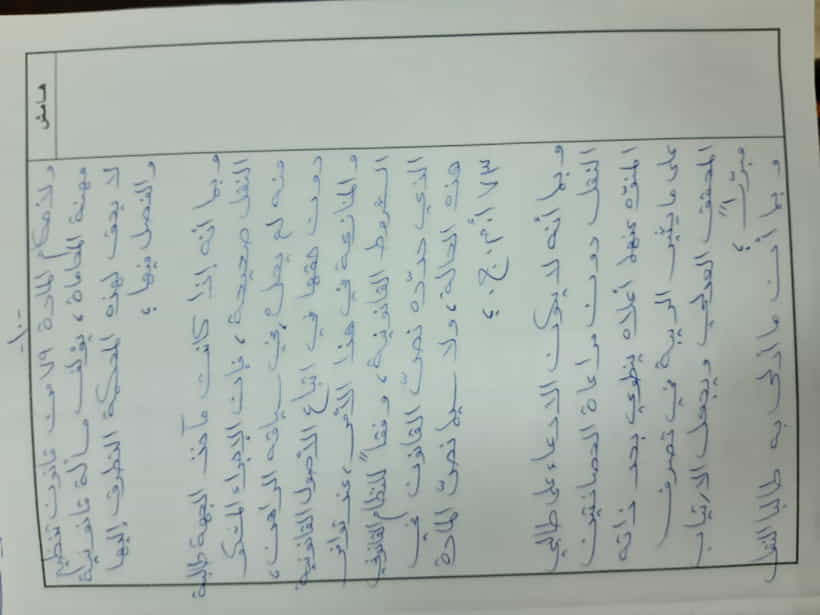 -١٠-
هامش
ولأحكام المادة ٧٩ من قانون تنظيم
مهنة المحاماة، يؤلف مسألة قانونية
لا يحق لهذه المحكمة التطرق إليها
والفصل فيها؛
وبما أنه إذا كانت مآخذ الجهة طالبة
النقل صحيحة، فإن الإجراء المشكو
منه لم يحصل في سياقه الراهن،
دون حقها في اتباع الأصول القانونية
والمنازعة في هذا الأمر، عند توافر
الشروط القانونية، وفقاً للنظام القانوني
الذي حدّده نصّ القانون في
هذه الحالة، ولا سيما نصّ المادة
٧٣ أ.م.ج.؛
وبما أنه لا يكون الادعاء على طالبي
النقل دون مراعاة الحصانتين
المنوّه عنهما أعلاه ينطوي بحد ذاته
على ما يثير الريبة في تصرف
المحقق العدلي ويجعل الارتياب
مبرّراً؛
وبما أن ما أدلى به طالبا النقل